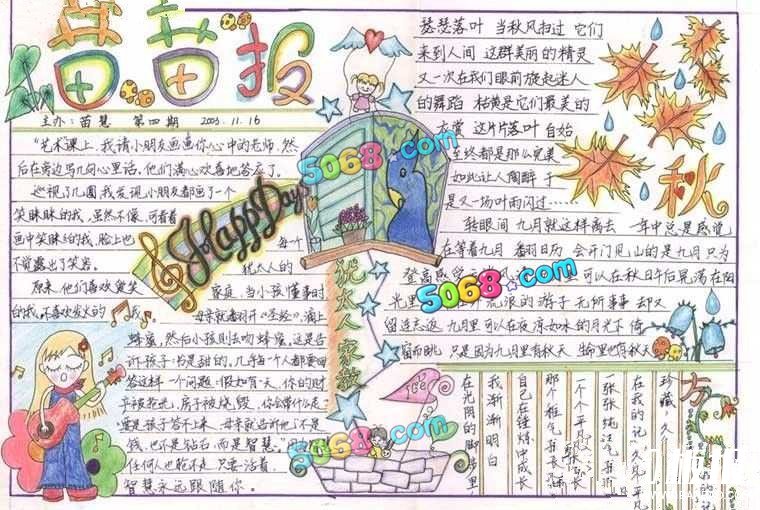 苗苗报
主办：苗慧 第四期 2003.11.16
"艺术"课上，我请小朋友画画你心中的老师，然
后在旁边写几句心里话，他们满心欢喜地答应了。
巡视了几圈，我发现小朋友都画了一个
笑眯眯的我，虽然不像，可看着
画中笑眯眯的我，脸上也
不觉露出了笑容。
原来，他们喜欢爱笑
的我，不喜欢发火的我。
Happy Days
犹太人家教
每个
犹太人的
家庭，当小孩懂事时
母亲就翻开《圣经》，滴上
蜂蜜，然后小孩则去吻蜂蜜，这是告
诉孩子：书是甜的，几乎每个人都要回
答这样一个问题：假如有一天，你的财
产被抢光，房子被烧毁，你会带什么走
要是孩子答不上来，母亲就告诉他：不是
钱，也不是钻石，而是智慧。"
任何人也抢不走，只要活着，
智慧永远跟随你。
秋
瑟瑟落叶 当秋风扫过 它们
来到人间 这群美丽的精灵
又一次在我们眼前旋起迷人
的舞蹈 枯黄是它们最美的
衣裳 这片片落叶 自始
至终都是那么完美
如此让人陶醉 于
是又一场叶雨闪过……
转眼间 九月就这样离去 一年中总是感觉
在等着九月 翻日历 会开门见山的是九月 只为
登高感受 可以在秋日午后晃荡在阳
光里 流浪的游子 无所事事 却又
留连忘返 九月里 可以在夜凉如水的月光下 倚
窗而眺 只是因为九月里有秋天 生命里也有秋天
方
珍藏，久
在我的记
一张张纯
一个个平
那个稚气
自己在锤炼中成长
我渐渐明白
在光阴的脚步里
5068.com
5068.com
5068.com
5068.com